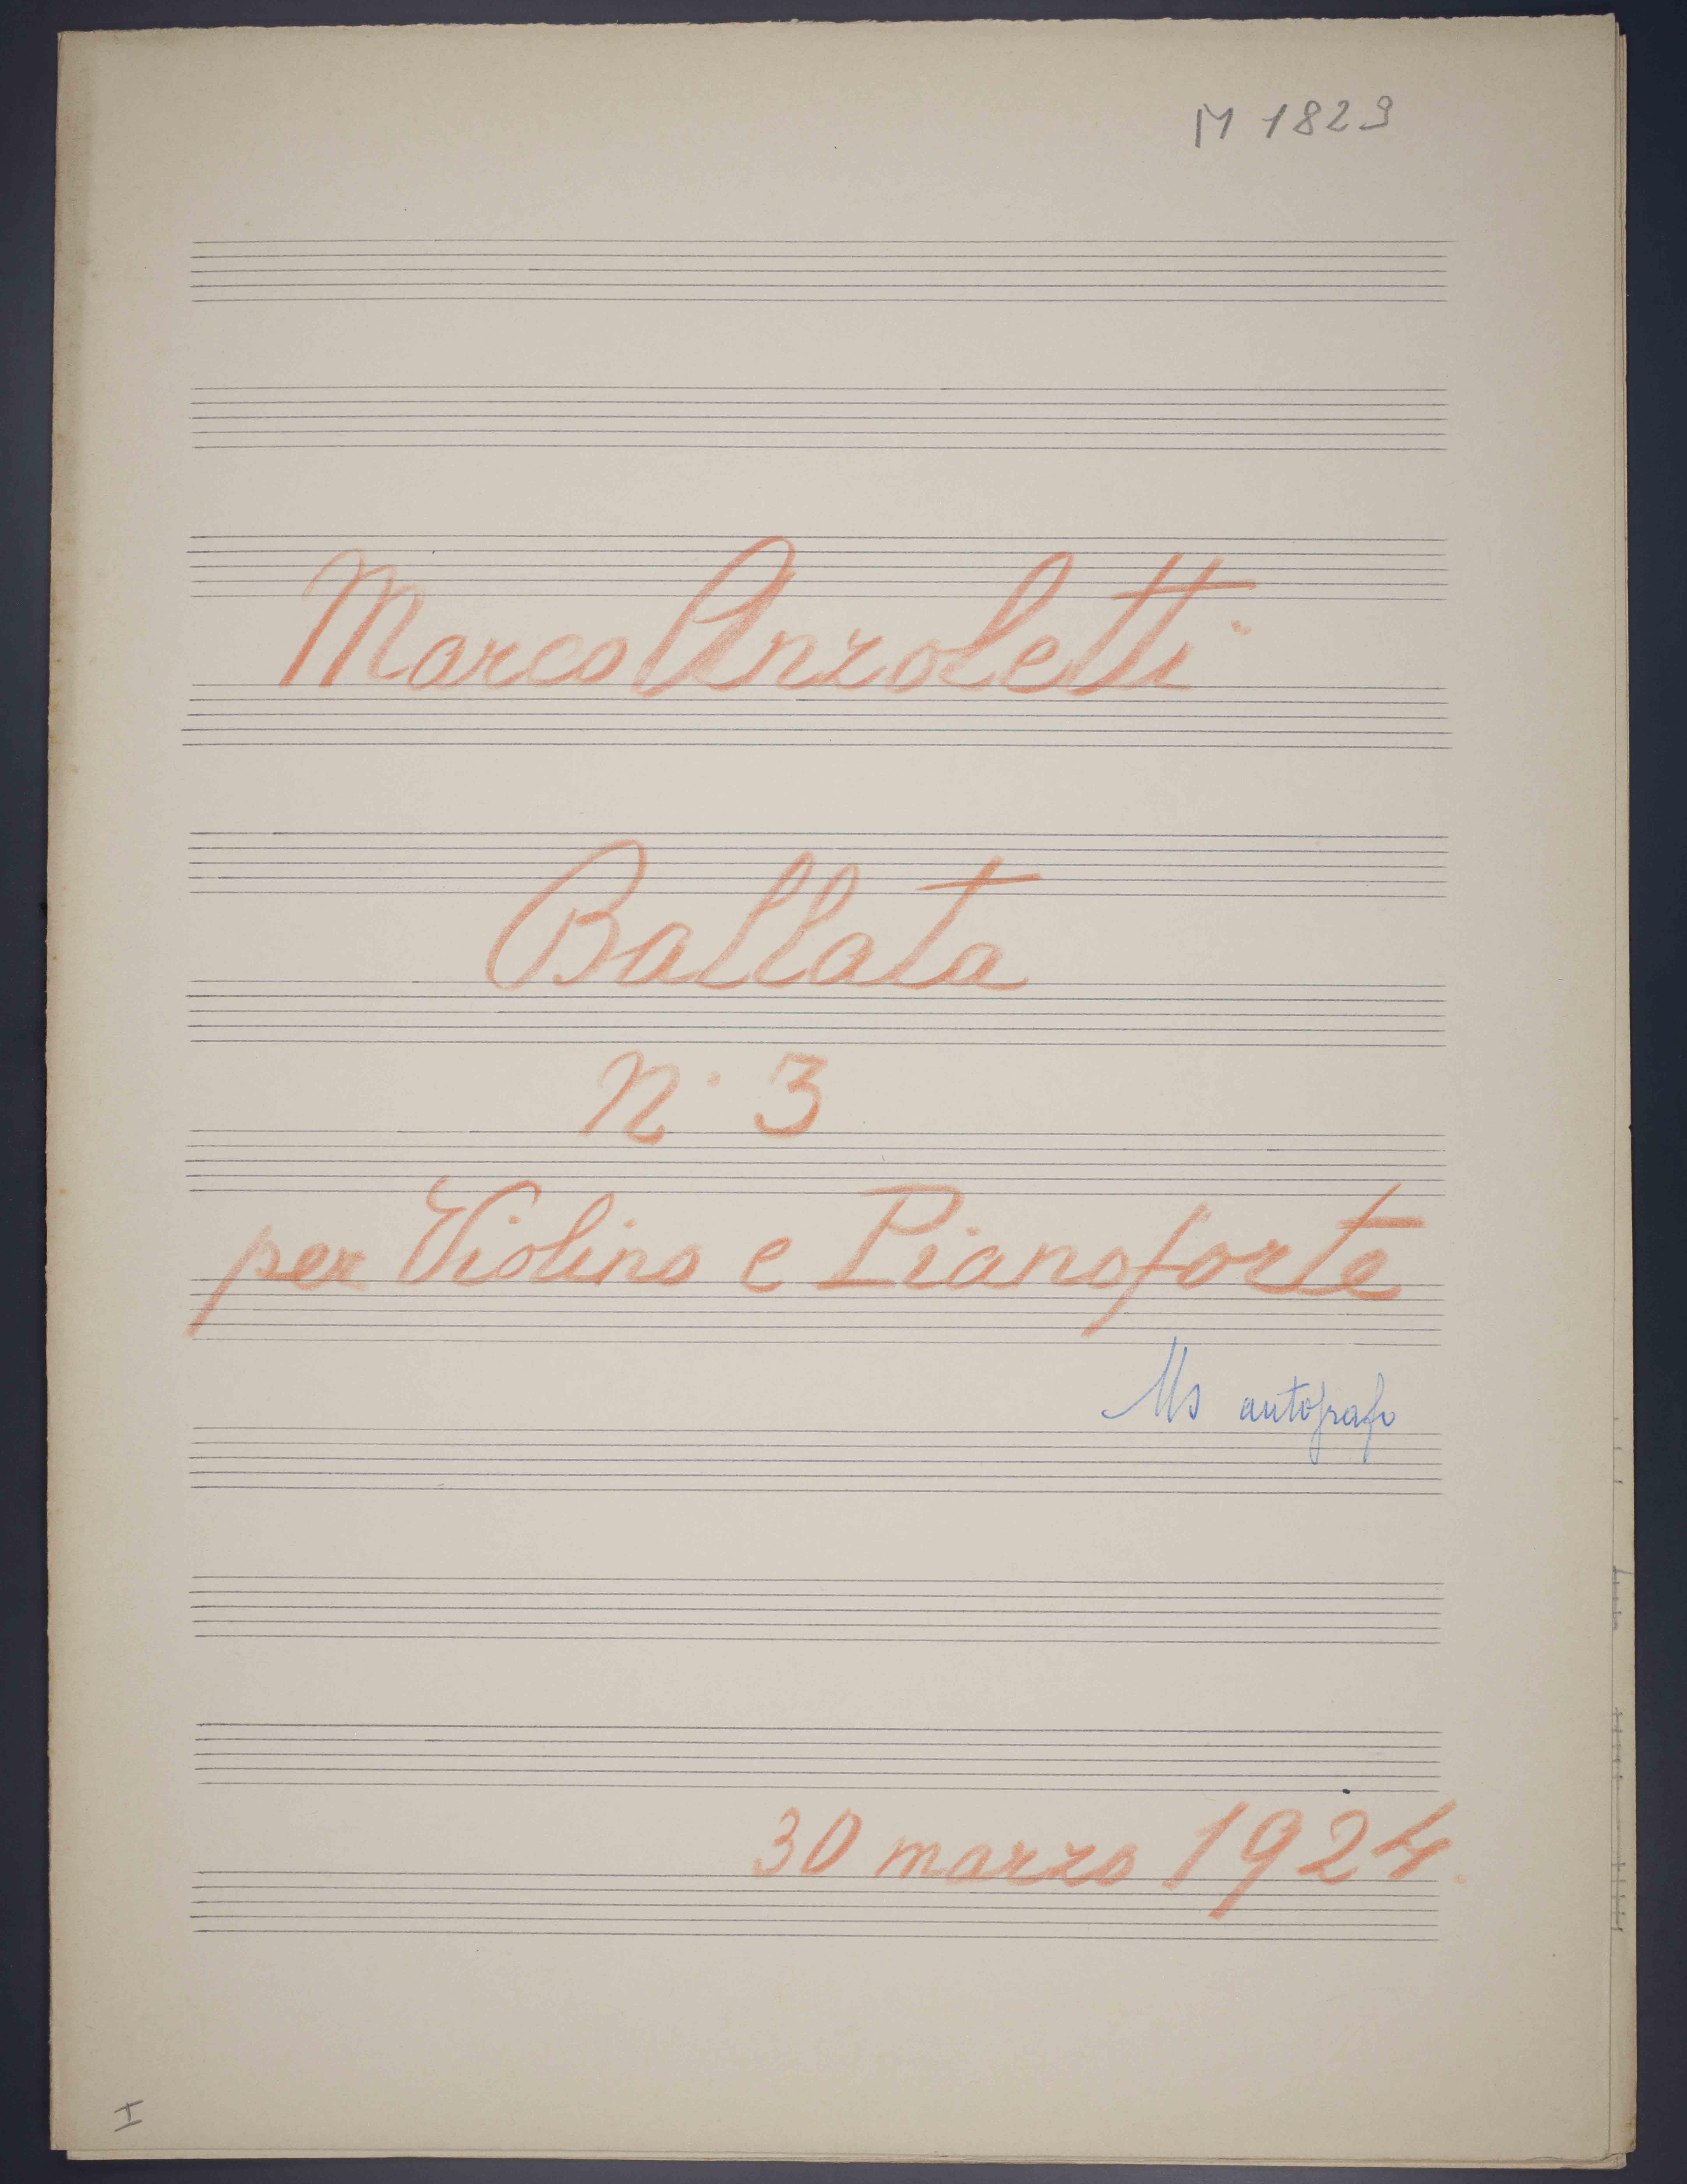 M 1829
Marco Anzoletti
Ballata
N. 3
per Violino e Pianoforte
Ms autografo
30 marzo 1924.
I